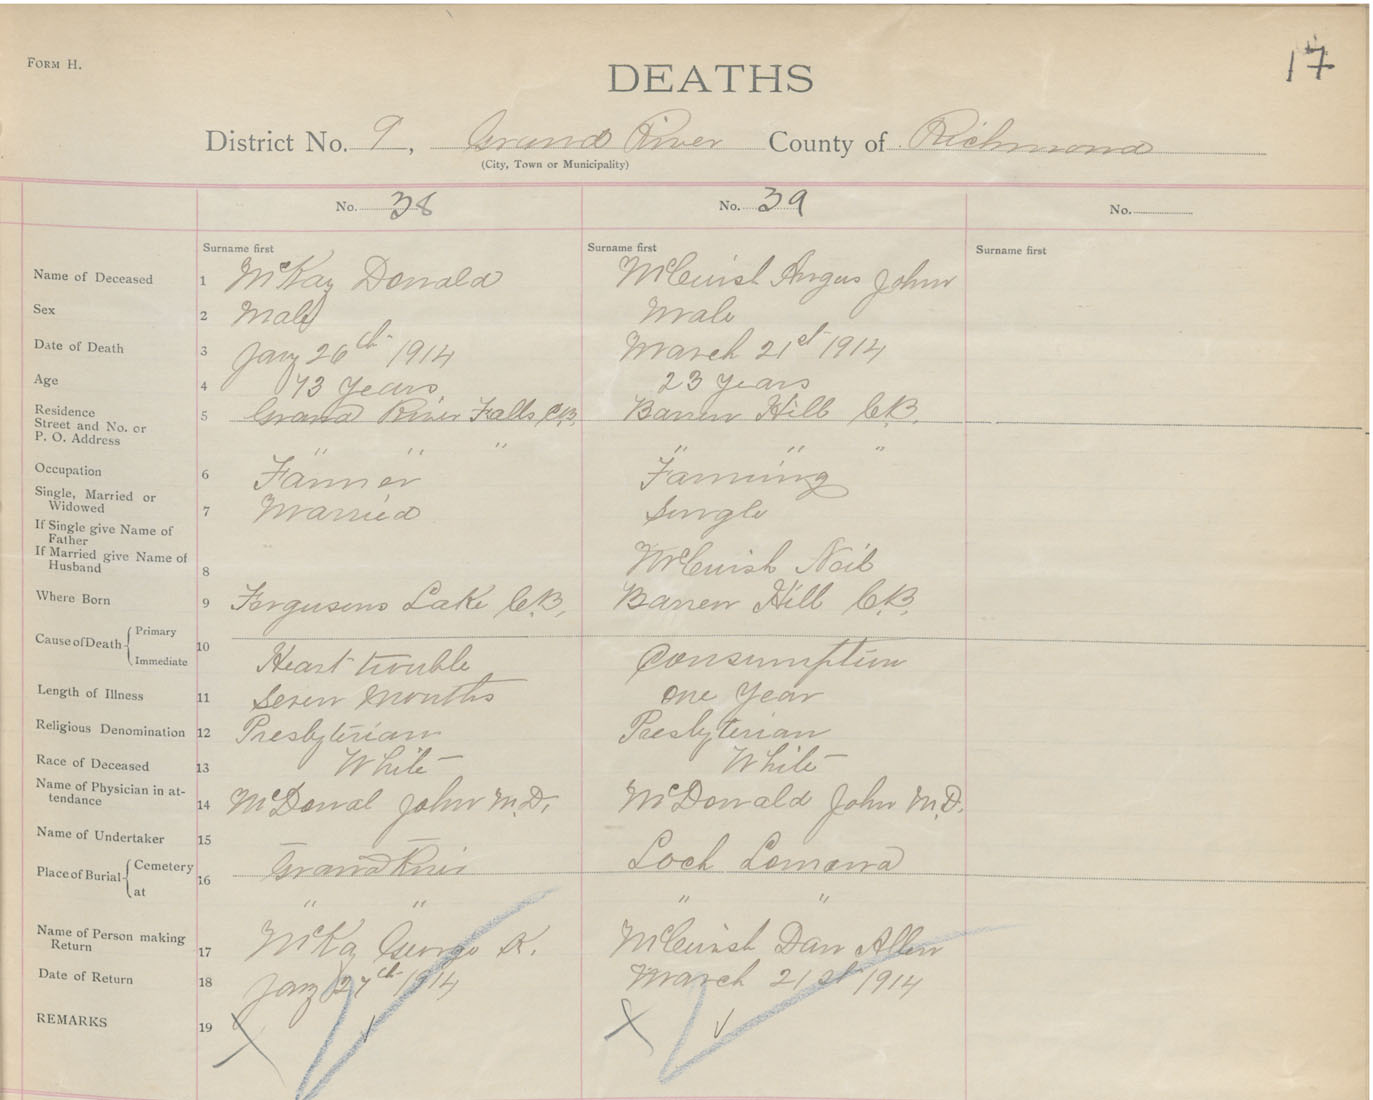 FORM H.
17
DEATHS
District No. 9, Grand River County of Richmond
(City, Town or Municipality)
No. 38 No. 39 No.
Surname first Surname first Surname first
Name of Deceased 1 McKay Donald McCuish Angus John
Sex 2 Male Male
Date of Death 3 Jany 26th 1914 March 21st 1914
Age 4 73 years 23 years
Residence 5 Grand River Falls C.B. Barren Hill C.B.
Street and No. or
P. O. Address " " " " " "
Occupation 6 Farmer Farming
Single, Married or
Widowed 7 Married Single
If Single give Name of
Father
If Married give Name of
Husband 8 McCuish Neil
Where Born 9 Fergusons Lake C.B. Barren Hill C.B.
Cause of Death { Primary
Immediate 10 Heart trouble Consumption
Length of Illness 11 Seven Months One Year
Religious Denomination 12 Presbyterian Presbyterian
Race of Deceased 13 White White
Name of Physician in at-
tendance 14 McDonal John M.D. McDonald John M.D.
Name of Undertaker 15
Place of Burial { Cemetery 16 Grand River Loch Lomond
at " " " "
Name of Person making
Return 17 McKay George K. McCuish Dan Allen
Date of Return 18 Jany 27th 1914 March 21st 1914
REMARKS 19 X X